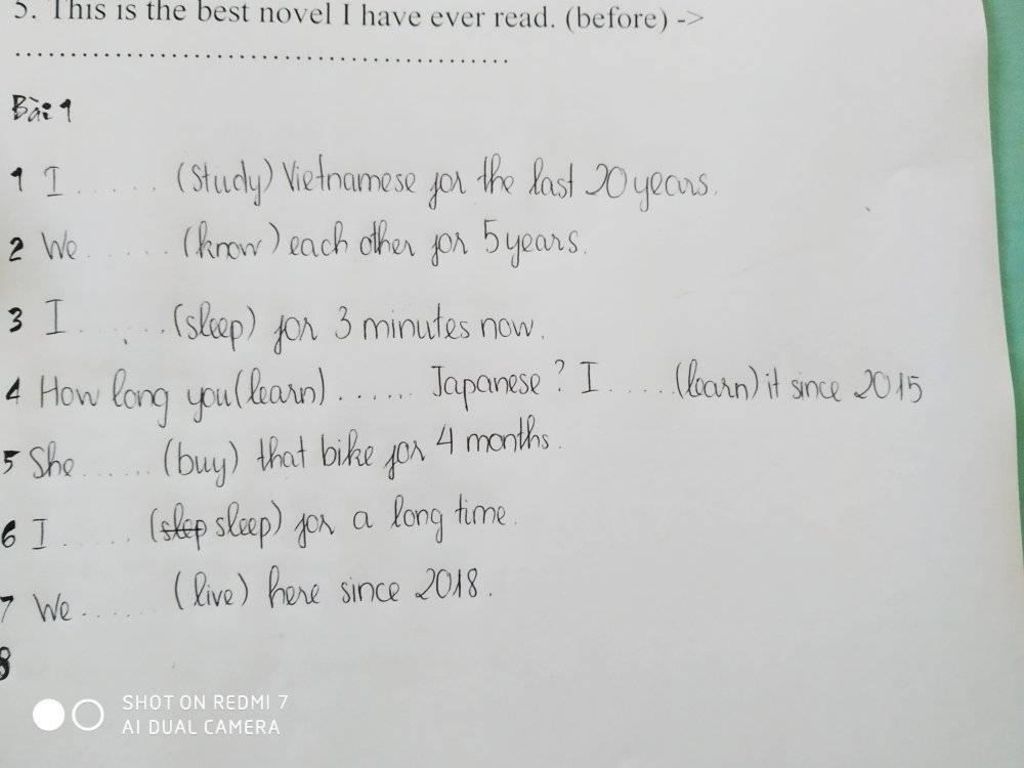 5. This is the best novel I have ever read. (before) ->
..........................................
Bài 1
1 I ...... (study) Vietnamese for the last 20 years.
2 We ...... (know) each other for 5 years.
3 I ...... (sleep) for 3 minutes now.
4 How long you (learn) ...... Japanese ? I ..... (learn) it since 2015
5 She ...... (buy) that bike for 4 months.
6 I ...... (slep sleep) for a long time.
7 We ...... (live) here since 2018.
8
SHOT ON REDMI 7
AI DUAL CAMERA